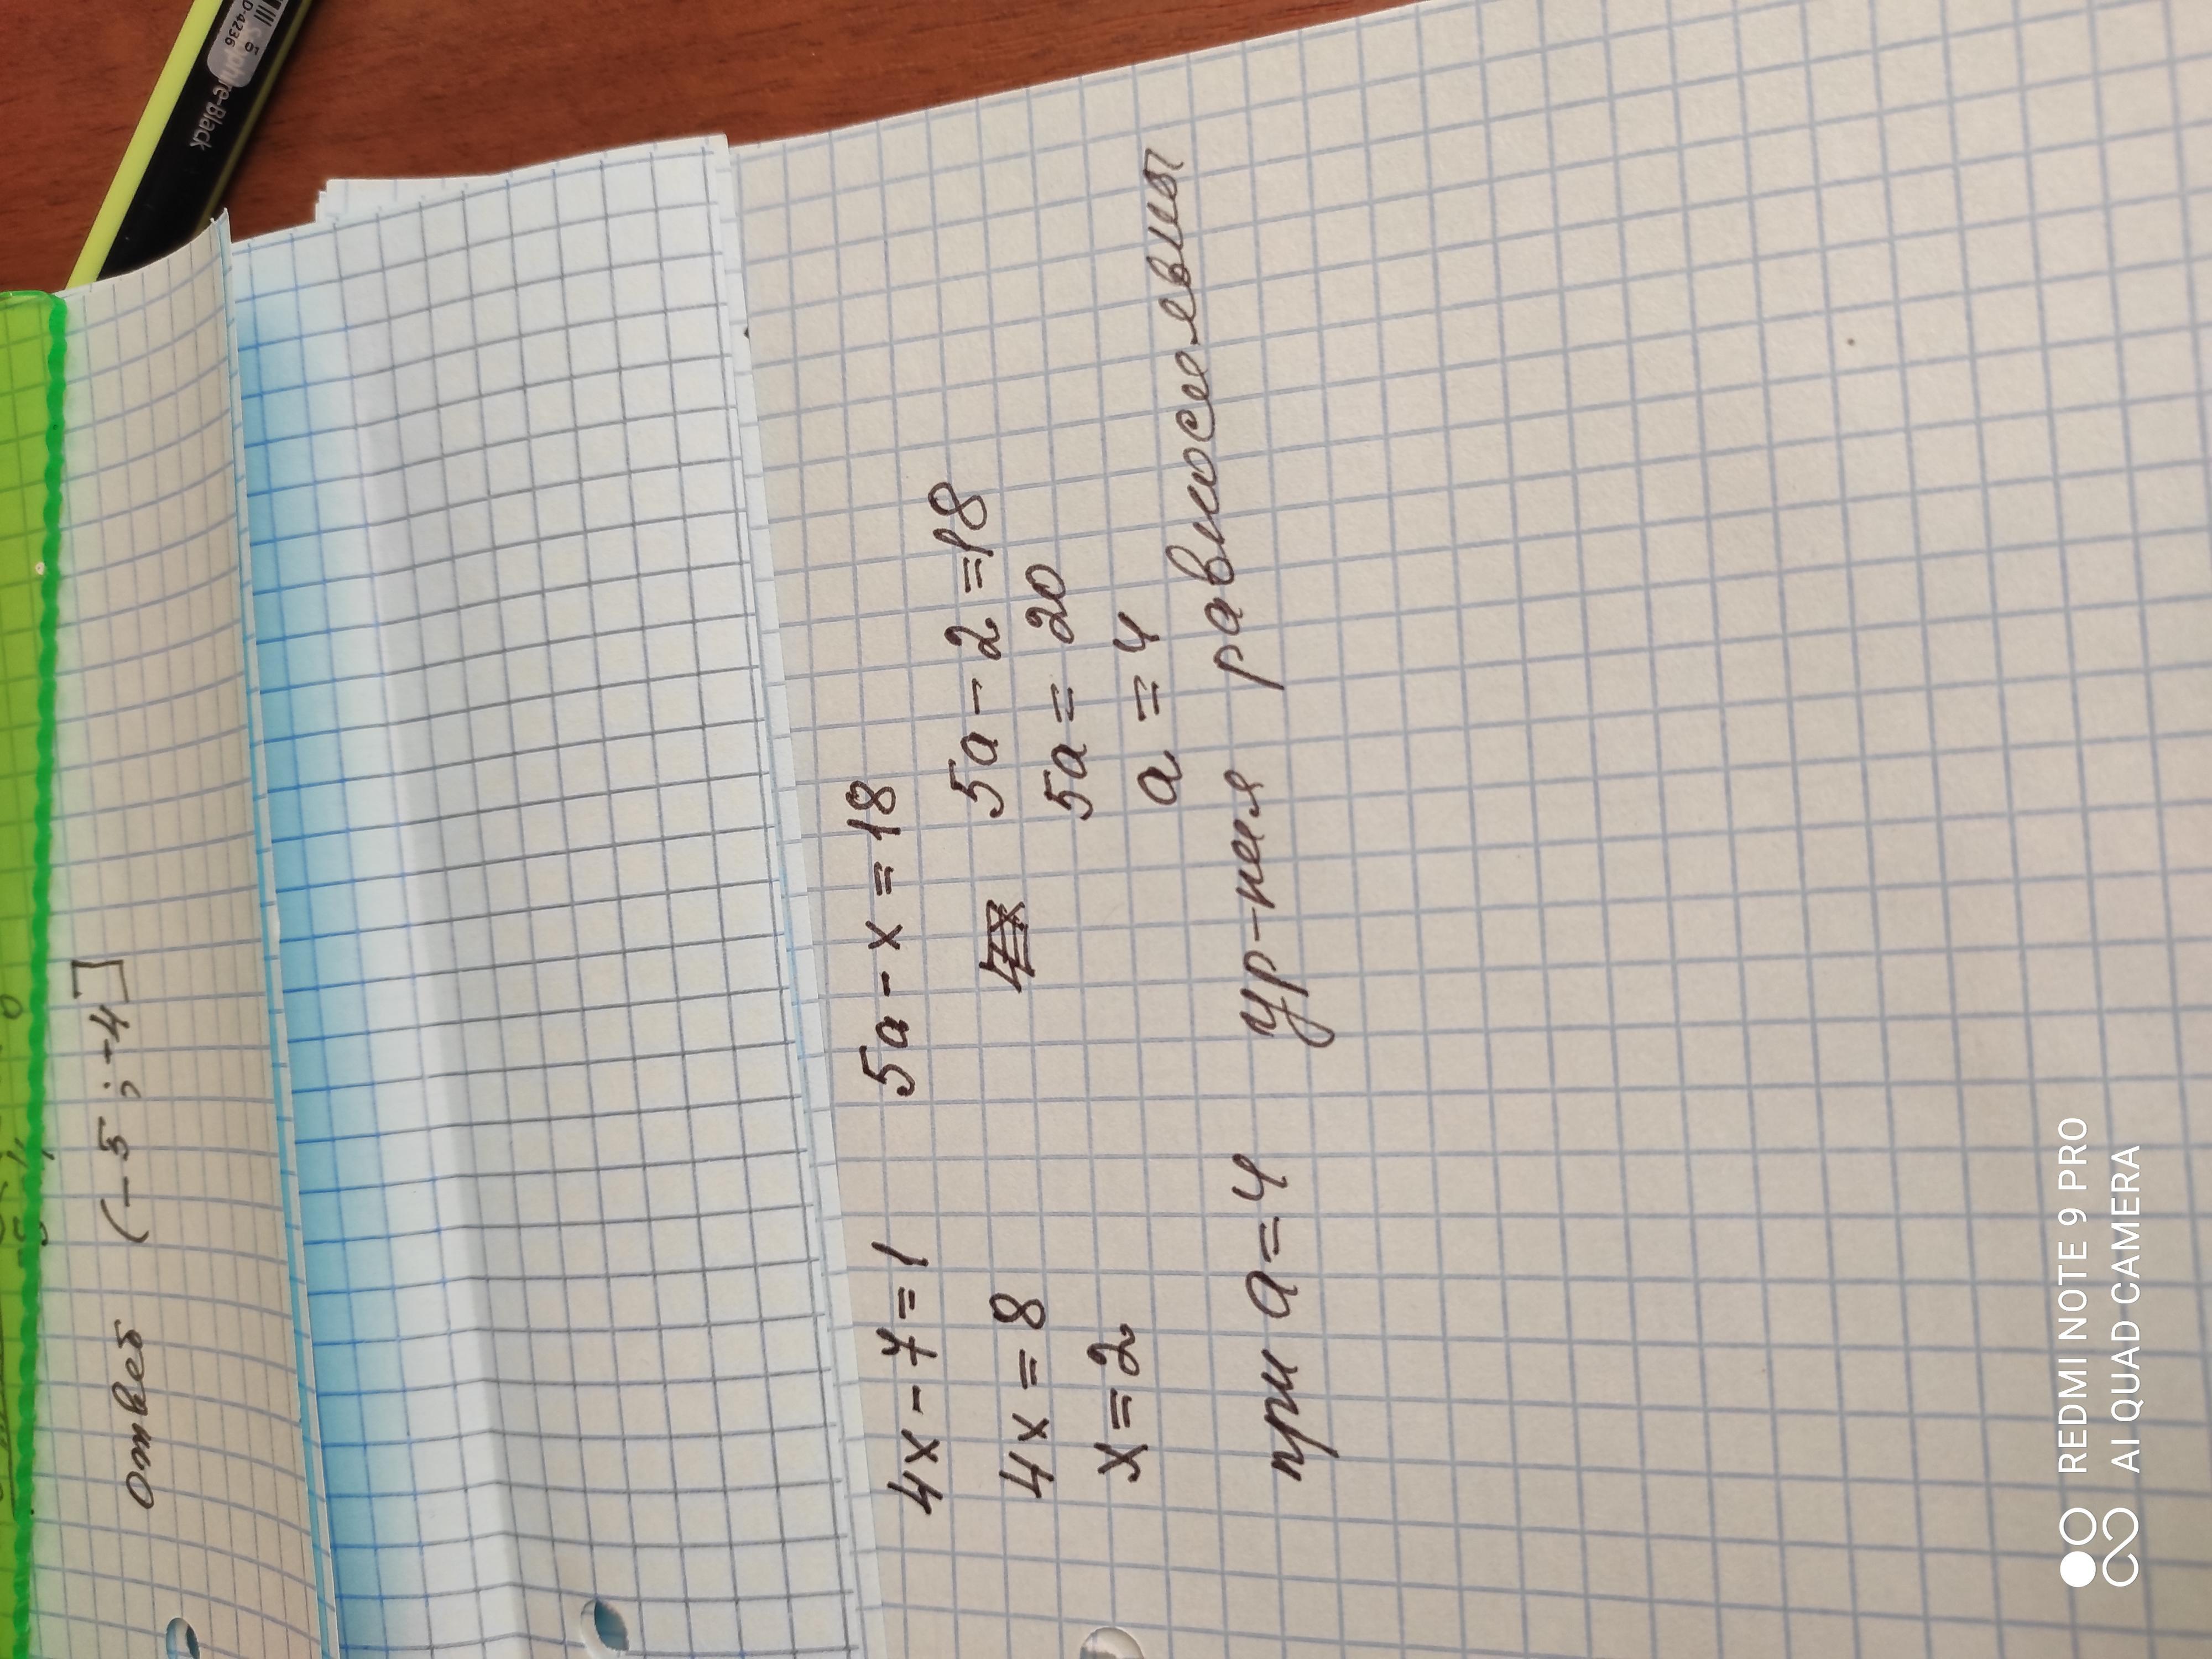 ответ (-5; -4]
4x - 7 = 1 5a - x = 18
4x = 8 5a - 2 = 18
x = 2 5a = 20
a = 4
при a = 4 ур-ния равносильны
REDMI NOTE 9 PRO
AI QUAD CAMERA
re-Black